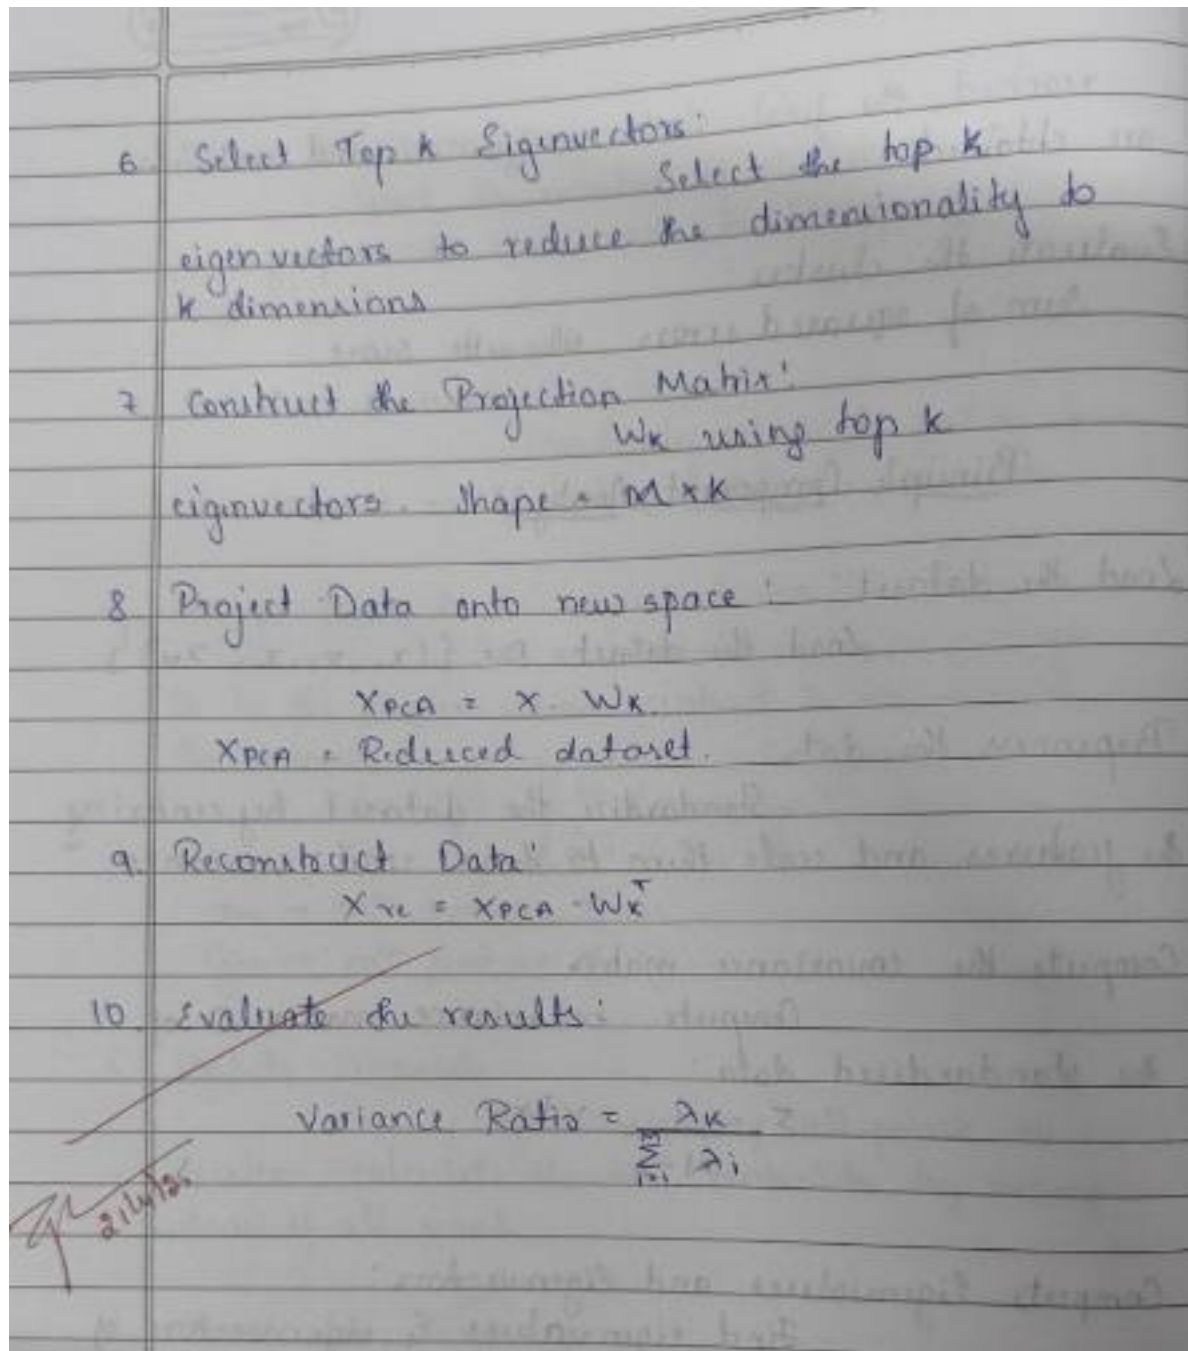 6 Select Top k Eigenvectors:
Select the top k
eigenvectors to reduce the dimensionality to
k dimensions
7 Construct the Projection Matrix:
Wk using top k
eigenvectors. Shape = M x K
8 Project Data onto new space:
XPCA = X. WK.
XPCA = Reduced dataset.
9. Reconstruct Data:
X re = XPCA . WK^T
10. Evaluate the results:
Variance Ratio = λK / Σ i=1 λi